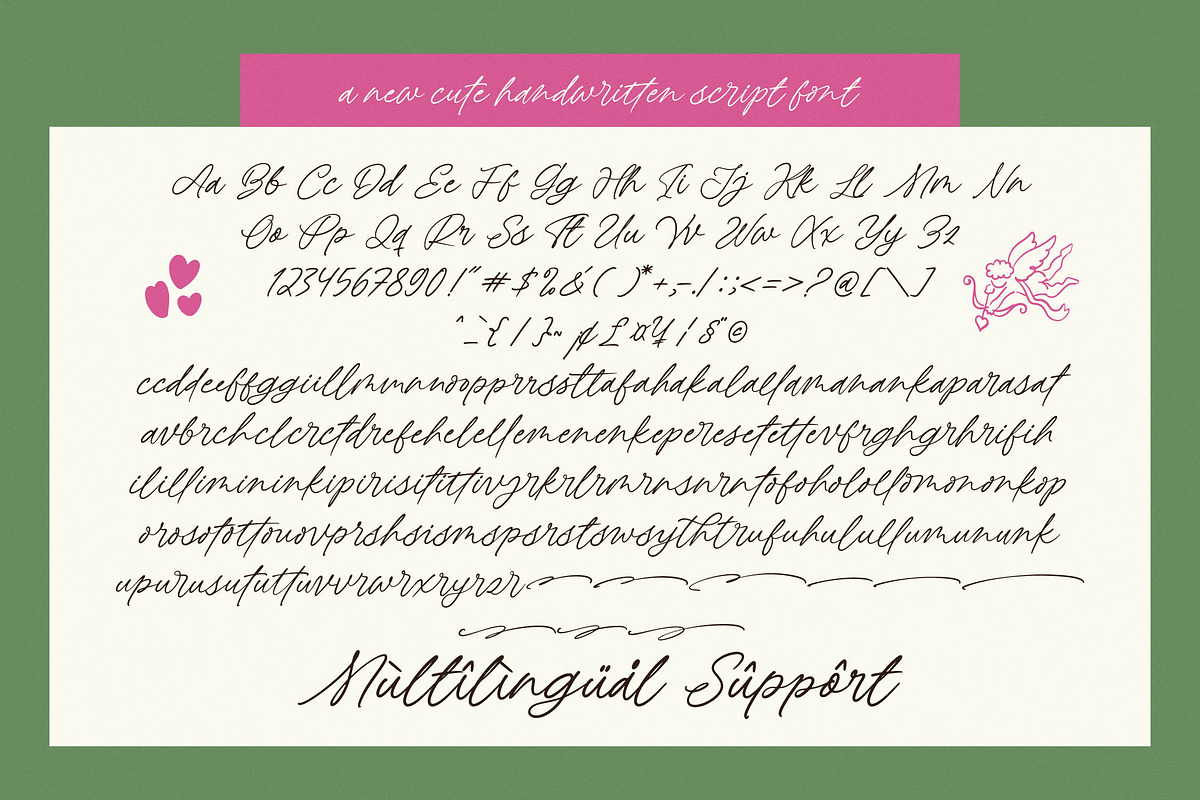 a new cute handwritten script font
Aa Bb Cc Dd Ee Ff Gg Hh Ii Jj Kk Ll Mm Nn
Oo Pp Qq Rr Ss Tt Uu Vv Ww Xx Yy Zz
1234567890!"#$%&'()*+,-./:;<=>?@[\]
^_`{|}~¢£¤¥¦§¨©
ccddeeffggiillmmnnooppr​rssttafahakalallamanankaparasat
avbrchclcrctdrefehelellemenenkeperesetettevfrghgrhrifih
ilillimininkipirisitittivjrkrlrmrnsnrntofoholollomononkop
orosotottouovprshsismspsrstswsythtrufuhulullumununk
upurusututtuvvrwrxryrzr
Mùltîlìngüål Sûppôrt